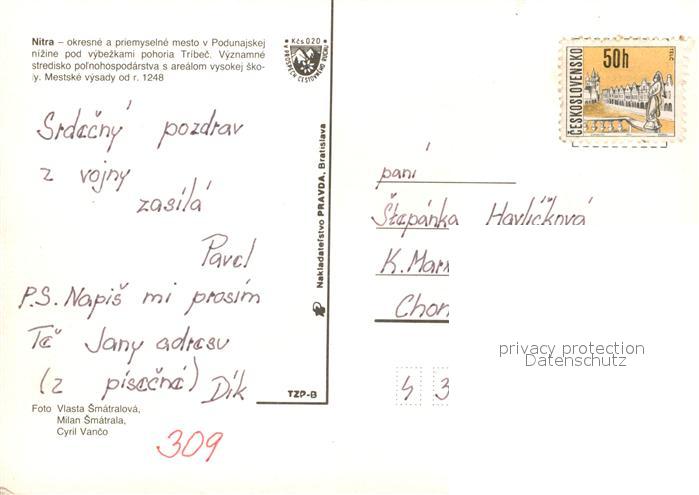 Nitra – okresné a priemyselné mesto v Podunajskej
nížine pod výbežkami pohoria Tríbeč. Významné
stredisko poľnohospodárstva s areálom vysokej ško-
ly. Mestské výsady od r. 1248
Kčs 0.20
Srdečný pozdrav
z vojny
zasílá
Pavel
P.S. Napiš mi prosím
Tě Jany adresu
(z písečné) Dík
Foto Vlasta Šmátralová,
Milan Šmátrala,
Cyril Vančo
309
Nakladateľstvo PRAVDA, Bratislava
TZP-B
ČESKOSLOVENSKO
50h
TELČ
paní
Štěpánka Havlíčková
K. Marx
Chom
4 3
privacy protection
Datenschutz